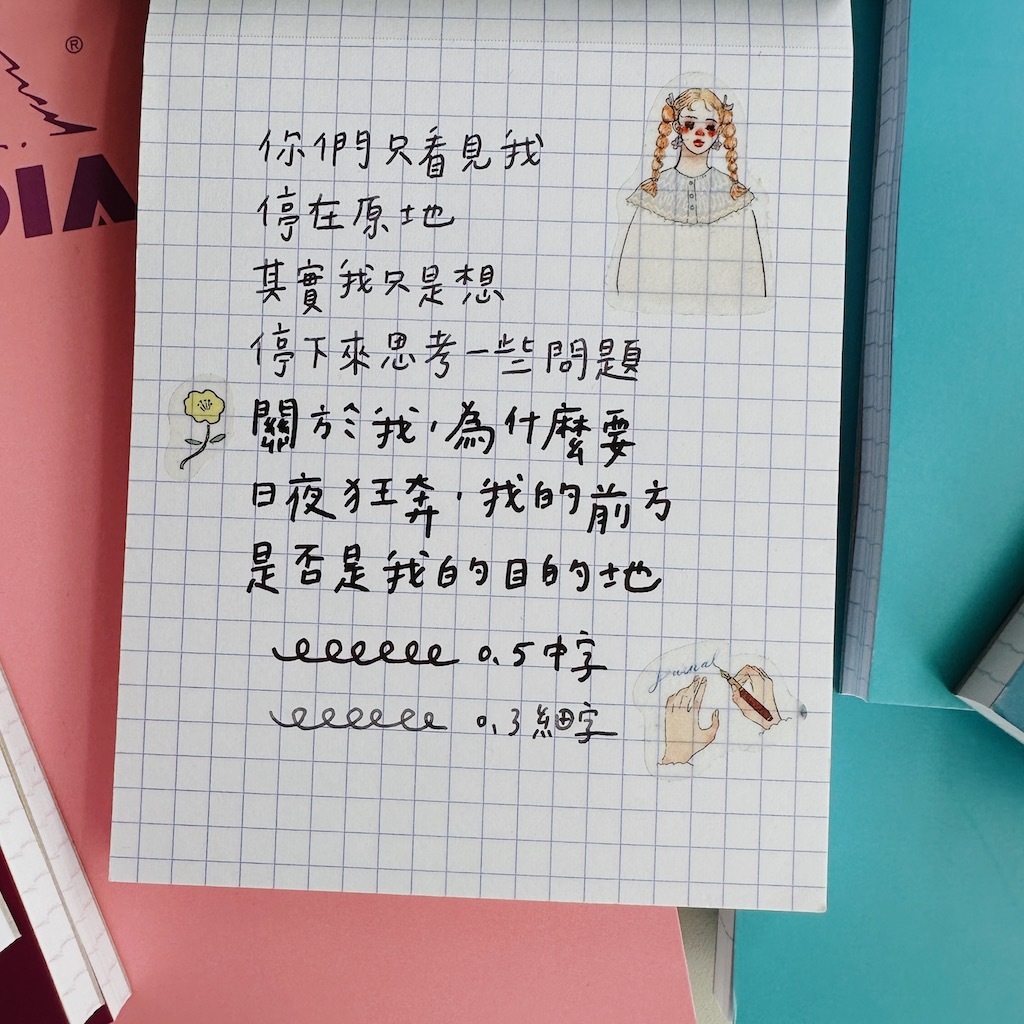 ®
DIA
你們只看見我
停在原地
其實我只是想
停下來思考一些問題
關於我,為什麼要
日夜狂奔,我的前方
是否是我的目的地
0.5中字
0.3細字
journal